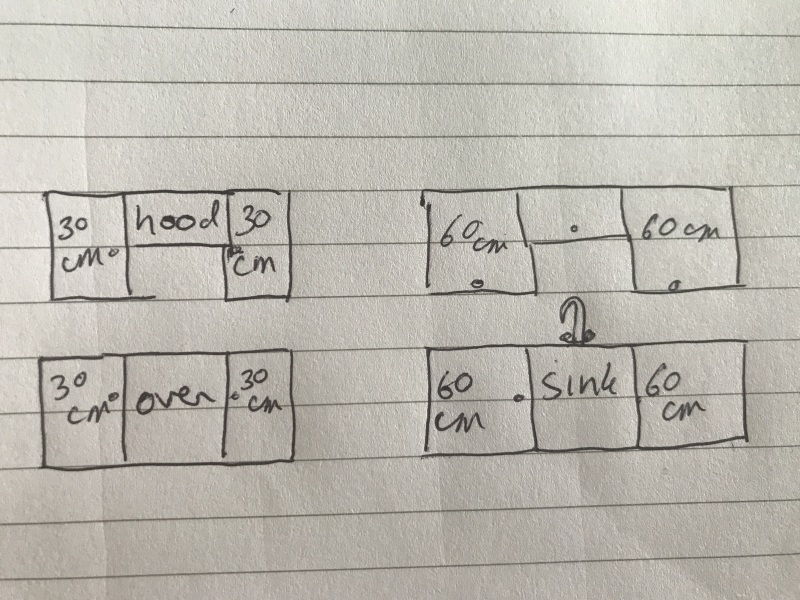 30 cm
hood
30 cm
60 cm
60 cm
30 cm
oven
30 cm
60 cm
sink
60 cm